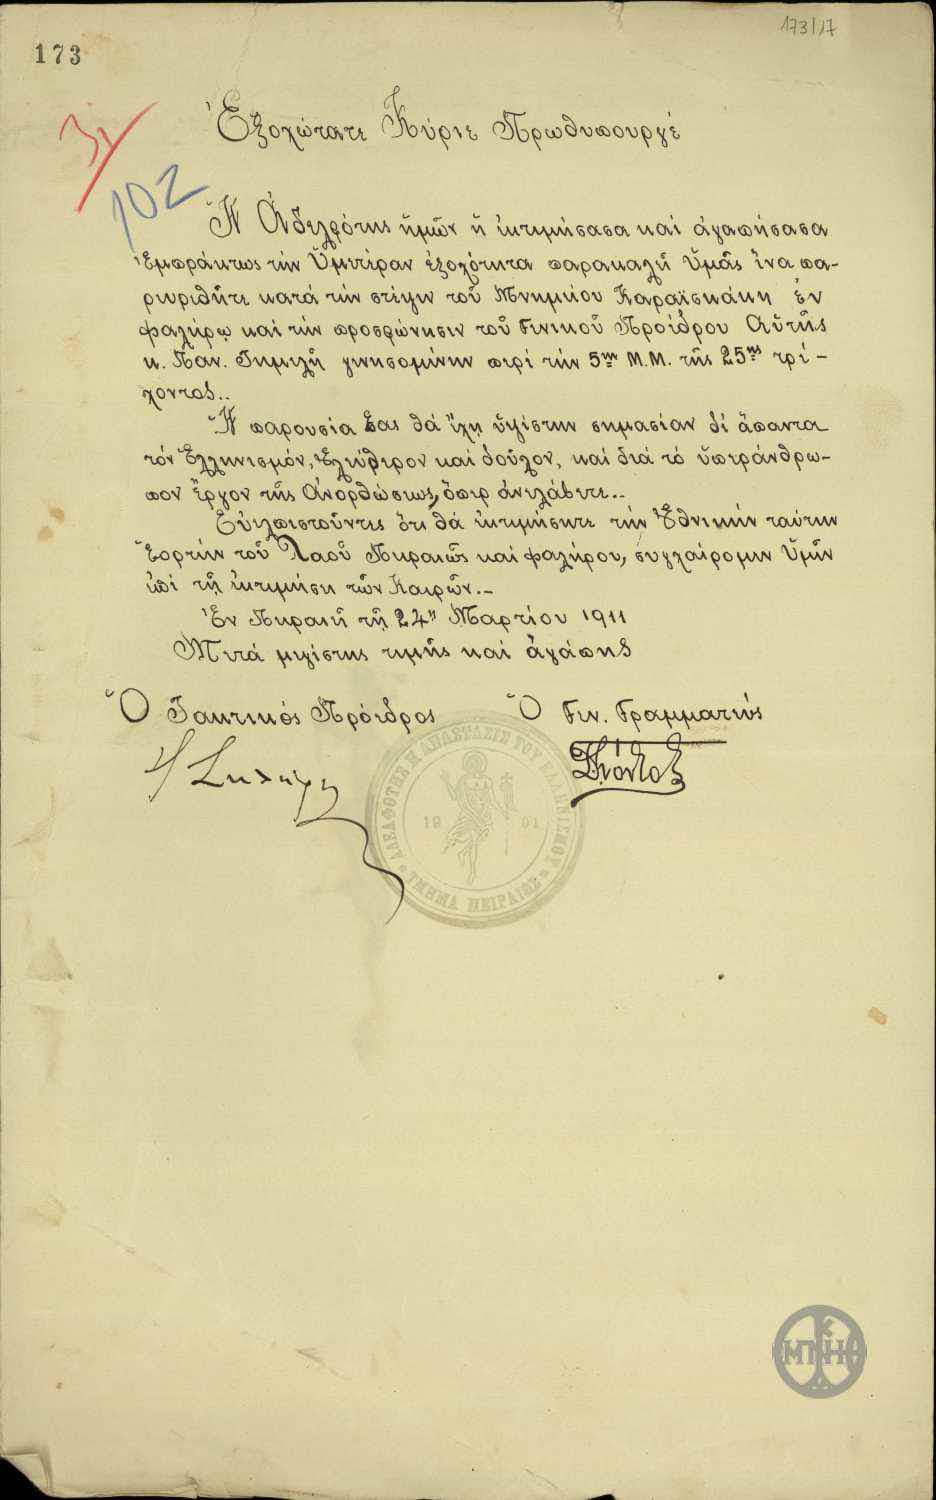 173/17
173
3γ
102
Ἐξοχώτατε Κύριε Πρωθυπουργέ
Ἡ Ἀδελφότης ἡμῶν ἡ ἐκτιμήσασα καί ἀγαπήσασα
Ἐμπράκτως τήν Ὑμετέραν ἐξοχότητα παρακαλῆ Ὑμᾶς ἵνα πα-
ρευρεθῆτε κατά τήν στέψιν τοῦ Μνημείου Καραϊσκάκη ἐν
Φαλήρῳ καί τήν προσφώνησιν τοῦ Γενικοῦ Προέδρου Αὐτῆς
κ. Παν. γενησομένην περί τήν 5ην Μ.Μ. τῆς 25ης τρέ-
χοντος..
Ἡ παρουσία Σας θά ἔχῃ ὑψίστην σημασίαν δί ἅπαντα
τόν Ἑλληνισμόν, Ἐλεύθερον καί δοῦλον, καί διά τό ὑπεράνθρω-
πον ἔργον τῆς Ἀνορθώσεως, ὅπερ ἀνελάβετε..
Εὐελπιστοῦντες ὅτι θά ἐκτιμήσητε τήν Ἐθνικήν ταύτην
Ἑορτήν τοῦ Λαοῦ Πειραιῶς καί Φαλήρου, συγχαίρομεν Ὑμῖν
ἐπί τῇ ἐκτιμήσει τῶν Καιρῶν.-
Ἐν Πειραιεῖ τῇ 24ῃ Μαρτίου 1911
Μετά μεγίστης τιμῆς καί ἀγάπης
Ὁ Τακτικός Πρόεδρος Ὁ Γεν. Γραμματεύς
ΑΔΕΛΦΟΤΗΣ Η ΑΝΑΣΤΑΣΙΣ ΤΟΥ ΕΛΛΗΝΙΣΜΟΥ
19 01
ΤΜΗΜΑ ΠΕΙΡΑΙΩΣ
ΜΝΗ